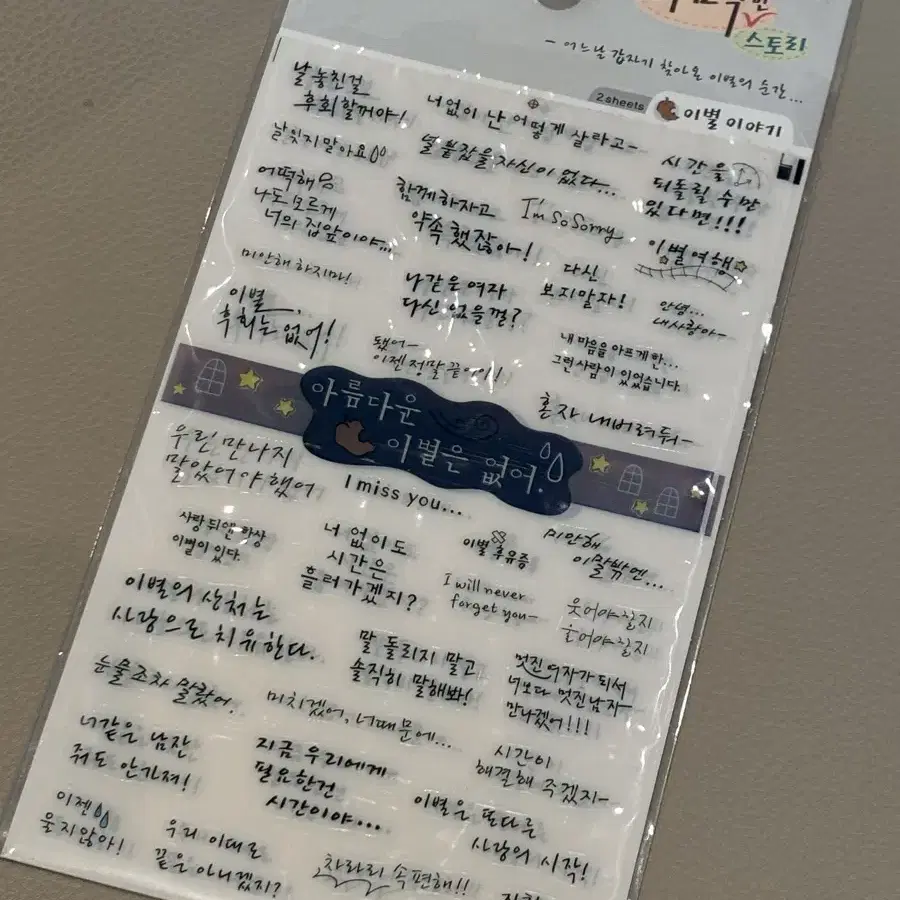 스토리
- 어느날 갑자기 찾아온 이별의 순간...
2sheets
이별 이야기
날 놓친걸
후회할꺼야!
너 없이 난 어떻게 살라고~
시간을
되돌릴 수만
있다면!!!
날잊지말아요
널 붙잡을 자신이 없다...
어떡해
나도모르게
너의 집앞이야...
함께하자고
약속했잖아!
I'm So Sorry
이별여행
미안해 하지마!
나같은 여자
다신 없을껄?
다신
보지말자!
안녕...
내사랑아~
이별
후회는 없어!
됐어~
이젠 정말 끝이야!
내 마음을 아프게 한...
그런 사람이 있었습니다.
혼자 내버려둬~
아름다운
이별은 없어
우린 만나지
말았어야했어
I miss you...
사랑 뒤엔 항상
이별이 있다.
너 없이도
시간은
흘러가겠지?
이별 후유증
미안해
이말밖엔...
I will never
forget you~
웃어야할지
울어야할지
이별의 상처는
사랑으로 치유한다.
말 돌리지 말고
솔직히 말해봐!
멋진여자가 되서
너보다 멋진남자
만나겠어!!!
눈물조차 말랐어.
미치겠어, 너때문에...
너같은 남잔
줘도 안가져!
지금 우리에게
필요한건
시간이야...
시간이
해결해 주겠지~
이젠
울지않아!
우리 이대로
끝은 아니겠지?
이별은 또다른
사랑의 시작!
차라리 속편해!!